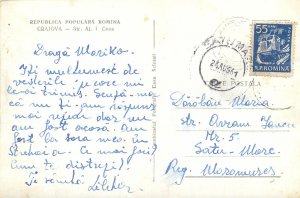 REPUBLICA POPULARĂ ROMÎNĂ
CRAIOVA — Str. Al. I. Cuza
Dragă Mariko.
Îți mulțumesc de
vederile pe care mi
le-ai trimis.
că nu ți-am răspuns
mai repede dar nu
am fost acasă, am
fost la sora mea în
Strehaia. Ce mai faci?
Cum te distrezi?
Te sărută
55
R.P.ROMINA
POȘTALĂ
Maria
str. Avram Iancu
Nr. 5
Satu-Mare
Reg. Maramureș